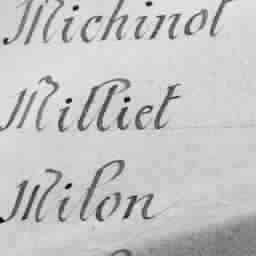 Michinot
Milliet
Milon